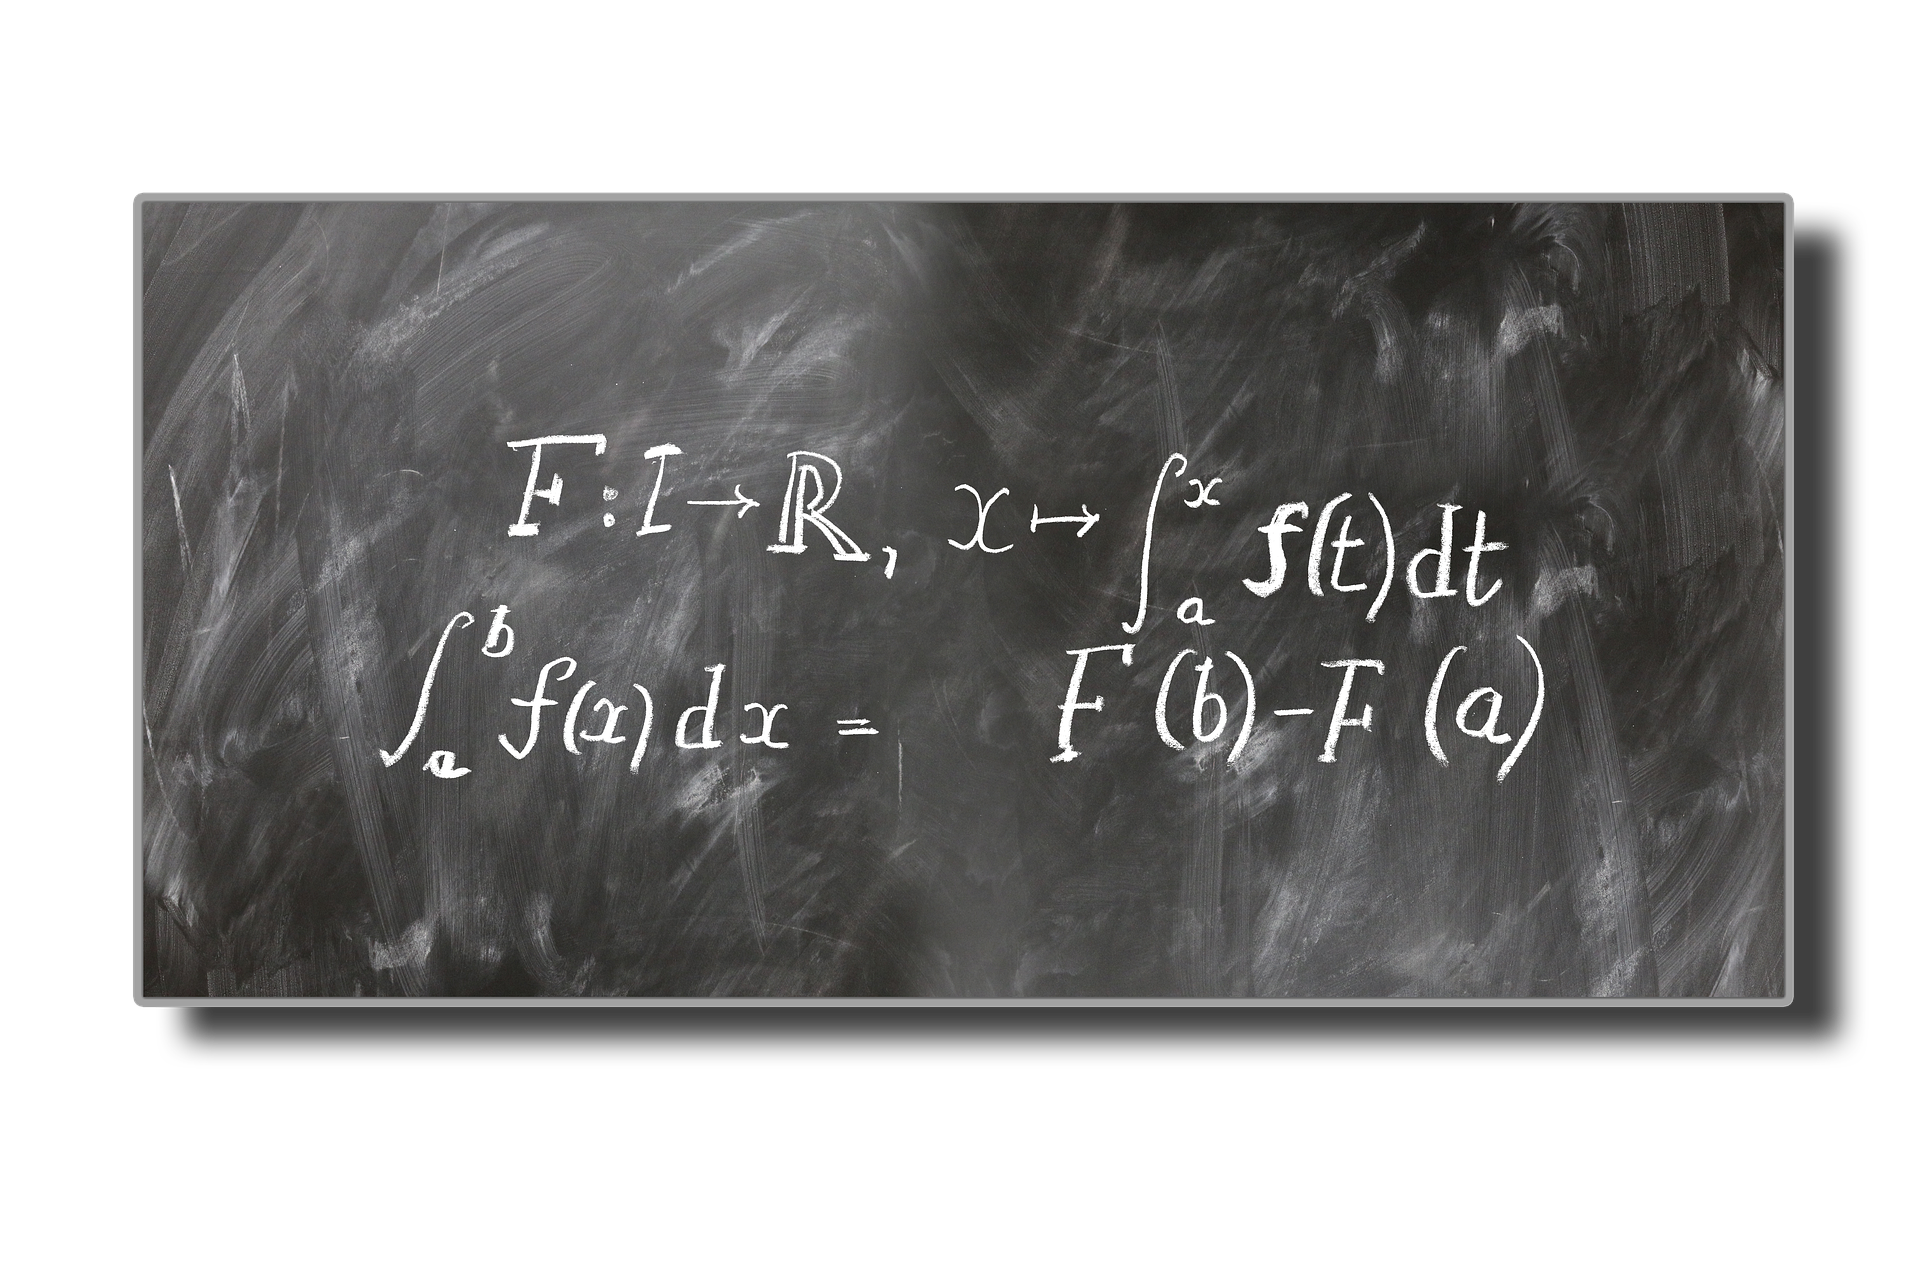 F : I → ℝ, x ↦ ∫ₐˣ f(t) dt
∫ₐᵇ f(x) dx = F (b) – F (a)